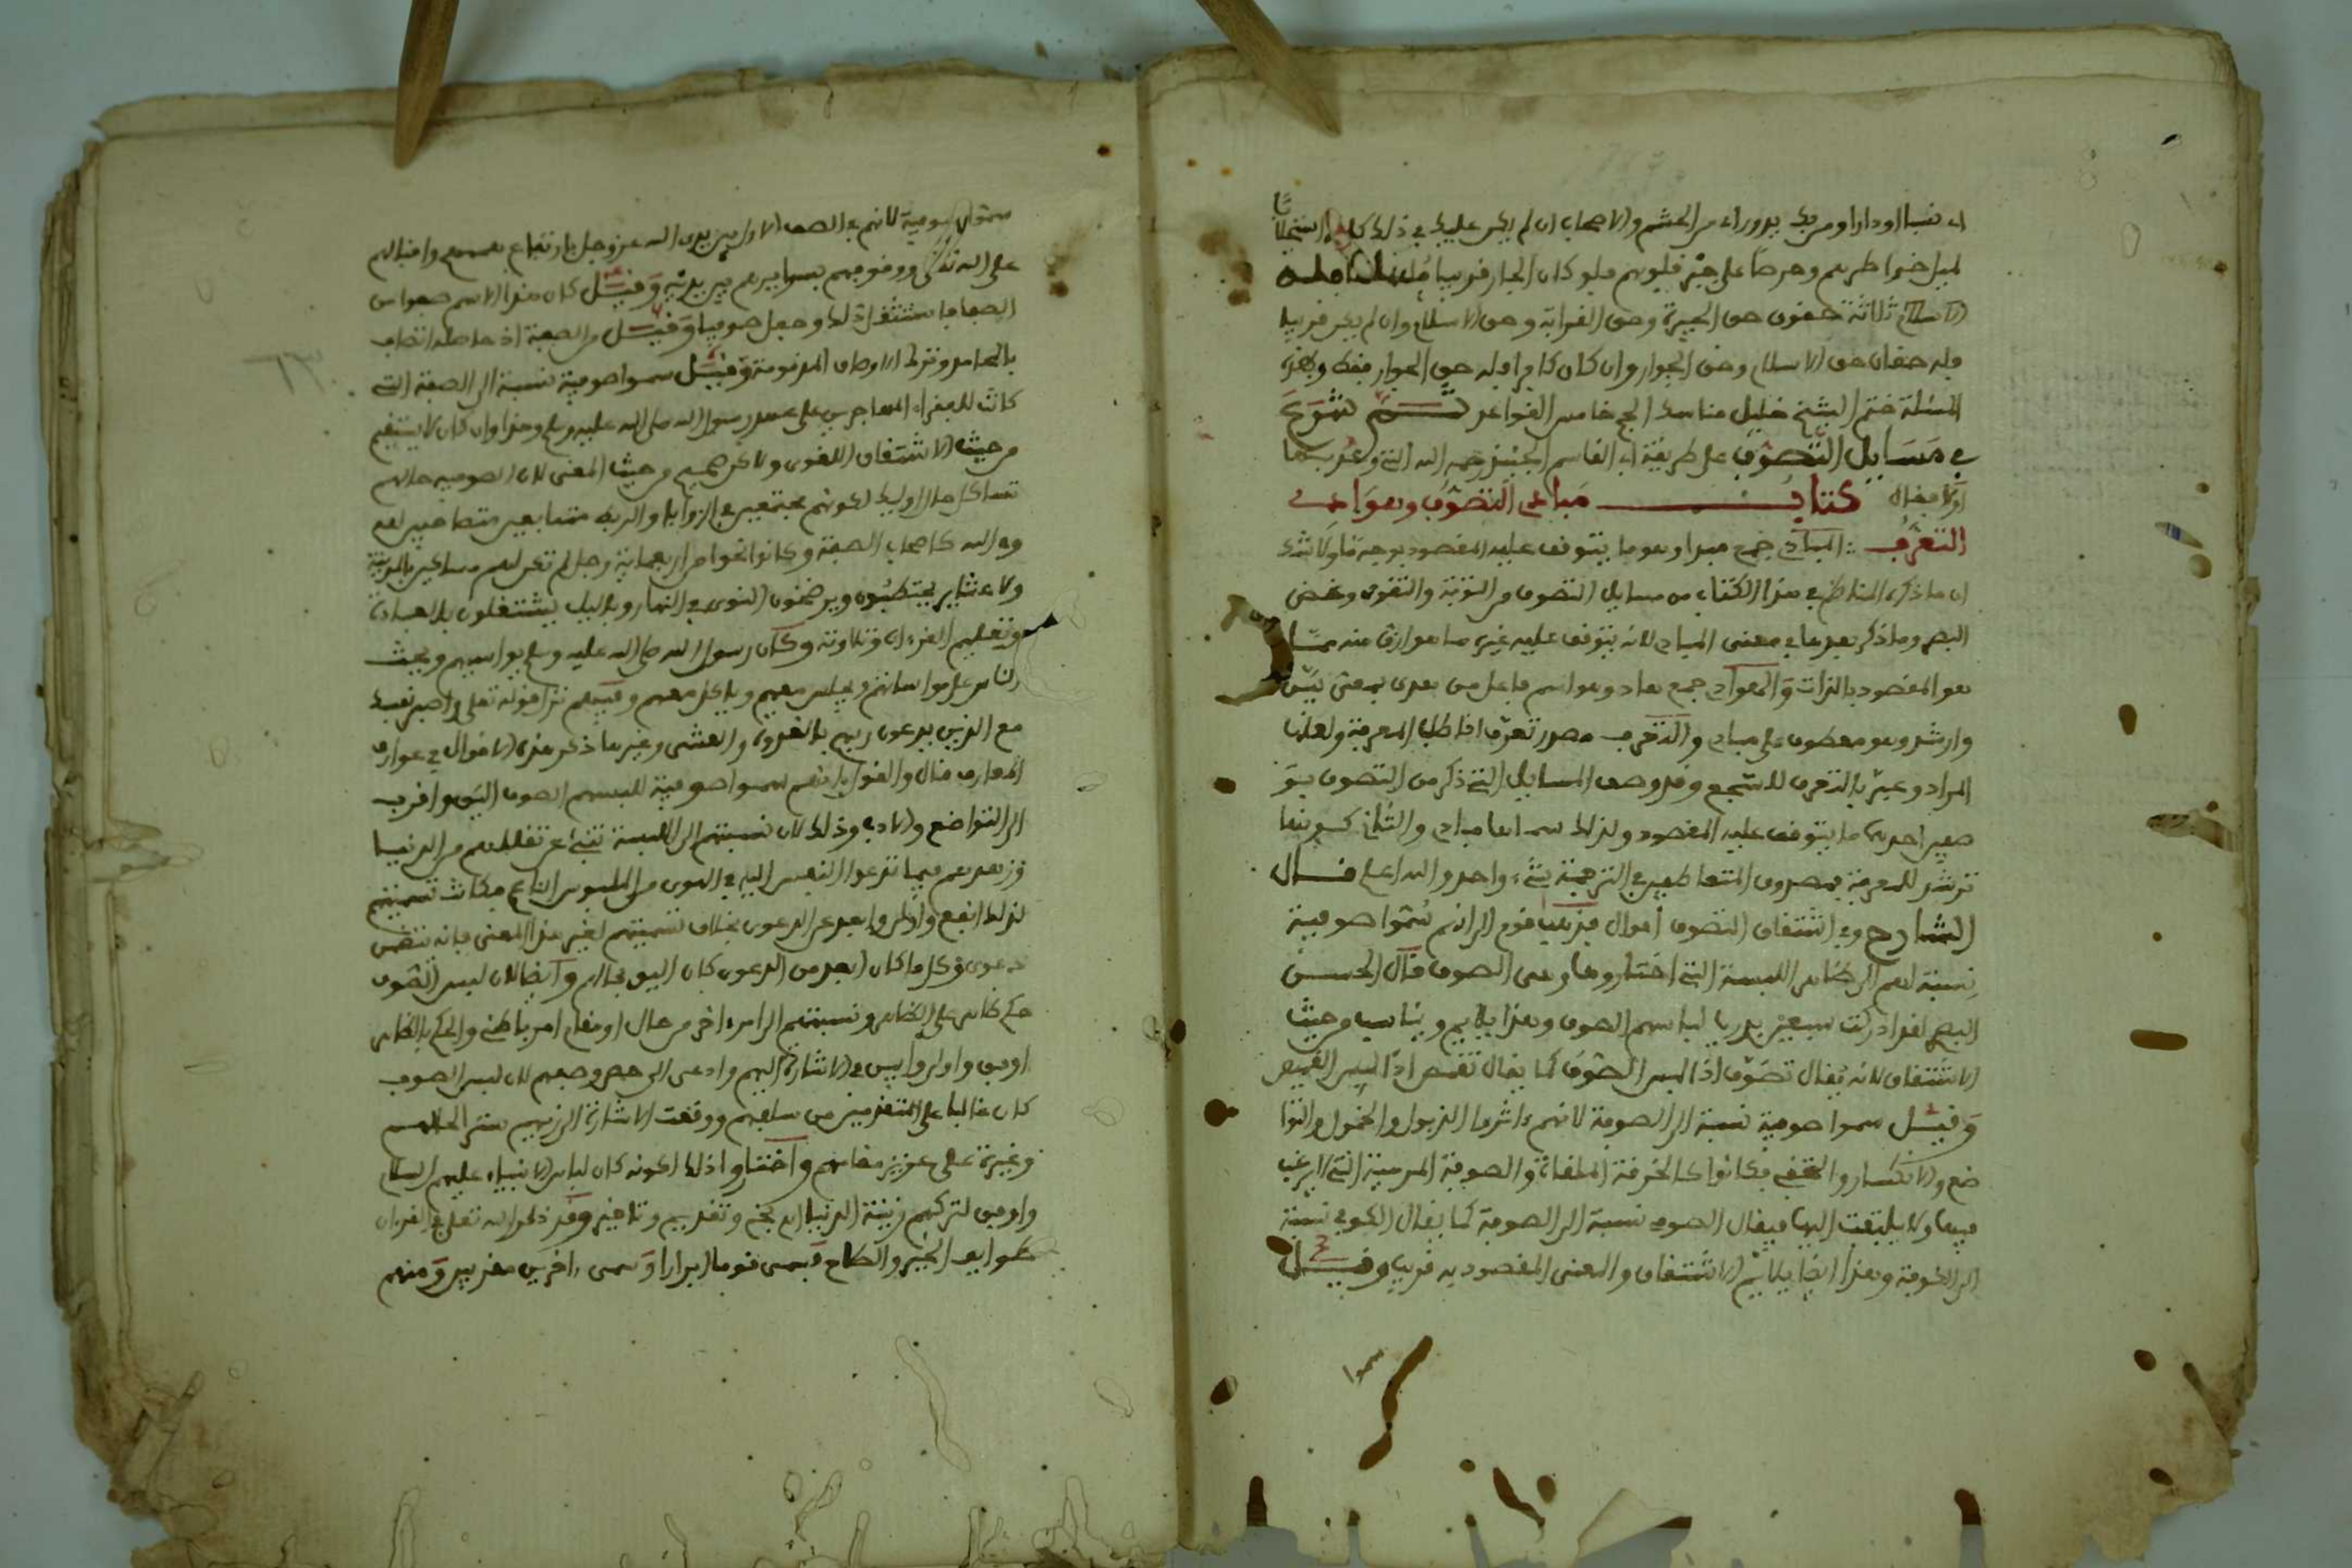 لميل خواطرهم وحرصا على جبر قلوبهم فلو كان الجار قريبا مسلما فله
ثلاثة حقوق حق الجيرة وحق القرابة وحق الاسلام وان لم يكن قريبا
فله حقان حق الاسلام وحق الجوار وان كان كافرا فله حق الجوار فقط وبهذه
المسئلة ختم الشيخ خليل مناسك الحج خامس القواعد ثم شرع
في مسايل التصوف على طريقة ابي القاسم الجنيد رحمه الله التي وعد بها
اولا فقال كتاب مبادي التصوف وهوادي
التعرف المبادي جمع مبدا وهو ما يتوقف عليه المقصود بوجه ما ولا شك
ان ما ذكره الناظم في هذا الكتاب من مسايل التصوف من التوبة والتقوى وغض
البصر وما ذكر بعدها في معنى المبادي لانه يتوقف عليه غيره مما هو ارق منه مما
هو المقصود بالذات والهوادي جمع هاد وهو اسم فاعل من هدى بمعنى بين
وارشد وهو معطوف على مبادي والتعرف مصدر تعرف اذا طلب المعرفة ولعلها
المراد وعبر بالتعرف للسجع وقد وصف المسايل التي ذكر من التصوف بو
صفين احدهما ما يتوقف عليه المقصود ولذلك سماها مبادي والثاني كونها
ترشد للمعرفة فمصدوق المتعاطفين في الترجمة شيء واحد والله اعلم قال
الشارح وفي اشتقاق التصوف اقوال فذهب قوم الى انهم سموا صوفية
نسبة لهم الى ظاهر اللبسة التي اختاروها وهي الصوف قال الحسن
البصري لقد ادركت سبعين بدريا لباسهم الصوف وهذا يلايم ويناسب من حيث
الاشتقاق لانه يقال تصوف اذا لبس الصوف كما يقال تقمص اذا لبس القميص
وقيل سموا صوفية نسبة الى الصوفة لانهم ءاثروا الذبول والخمول والتوا
ضع والانكسار والتخفي فكانوا كالخرقة الملقاة والصوفة المرمية التي لا يرغب
فيها ولا يلتفت اليها فيقال الصوفي نسبة الى الصوفة كما يقال الكوفي نسبة
الى الكوفة وهذا ايضا يلايم الاشتقاق والمعنى المقصود به قريب وقيل
سموا
سموا صوفية لانهم في الصف الاول بين يدي الله عز وجل بارتفاع هممهم واقبالهم
على الله تعالى ووقوفهم بسرايرهم بين يديه وقيل كان هذا الاسم صفوا من
الصفا فاستثقل ذلك وجعل صوفيا وقيل من الصفة اذ حاصله اتصاف
بالمحامد وترك الاوصاف المذمومة وقيل سموا صوفية نسبة الى الصفة التي
كانت للفقراء المهاجرين على عهد رسول الله صلى الله عليه وسلم وهذا وان كان لا يستقيم
من حيث الاشتقاق اللغوي ولاكن صحيح من حيث المعنى لان الصوفية حالهم
تشاكل حال اوليك لكونهم مجتمعين في الزوايا والربط متسابقين متصاحبين لله
وفي الله كاصحاب الصفة وكانوا نحوا من اربعماية رجل لم تكن لهم مساكن بالمدينة
ولا عشاير يحتطبون ويرضخون النوى في النهار وبالليل يشتغلون بالعبادة
وتعليم القرءان وتلاوته وكان رسول الله صلى الله عليه وسلم يواسيهم ويحث
الناس على مواساتهم ويجلس معهم وياكل معهم وفيهم نزل قوله تعلى واصبر نفسك
مع الذين يدعون ربهم بالغدوة والعشي وغيرها ذكر هذه الاقوال في عوارف
المعارف قال والقول بانهم سموا صوفية للبسهم الصوف اليق واقرب
الى التواضع والادب وذلك لان نسبتهم الى اللبسة تنبئ عن تقللهم من الدنيا
وزهدهم فيما تدعوا النفس اليه في الهوى من الملبوس الناعم فكانت تسميتهم
لذلك انفع واولى وابعد عن الدعوى بخلاف تسميتهم لغير هذا المعنى فانه تتضمن
دعوى وكل ما كان ابعد من الدعوى كان اليق بحالهم وايضا لان لبس الصوف
حكم ظاهر على الظاهر ونسبتهم الى امر ءاخر من حال او مقام امر باطن والحكم بالظاهر
اوفق واولى وليس في الاشارة اليهم وادعى الى حصر وصفهم لان لبس الصوف
كان غالبا على المتقدمين من سلفهم ووقعت الاشارة الى زيهم
وغيرة على عزيز مقامهم واختاروا ذلك لكونه كان لباس الانبياء عليهم السلام
واوفق لتركهم زينة الدنيا وقد ذكر الله تعلى في القرءان
طوايف الخير والصلاح فسمى قوما ابرارا وسمى ءاخرين مقربين ومنهم